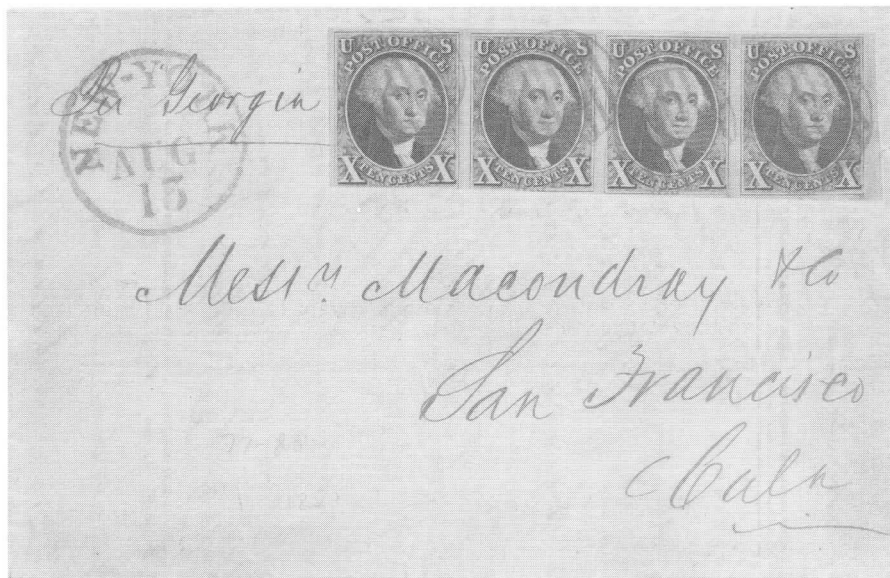 Per Georgia
NEW-YORK
AUG
15
U S
POST OFFICE
X TEN CENTS X
U S
POST OFFICE
X TEN CENTS X
U S
POST OFFICE
X TEN CENTS X
U S
POST OFFICE
X TEN CENTS X
Messrs Macondray & Co
San Francisco
Cala